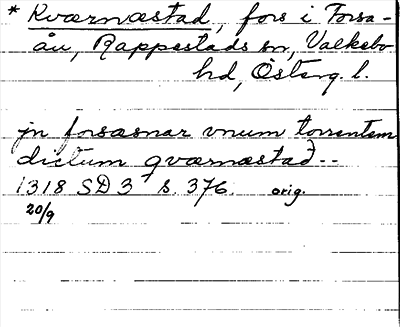 * Kværnæstad, fors i Forsa-
ån, Rappestads sn, Valkebo
hd, Österg. l.
jn forsæsnar vnum torrentem
dictum qværnæstad--
1318 SD 3 s. 376. orig.
20/9